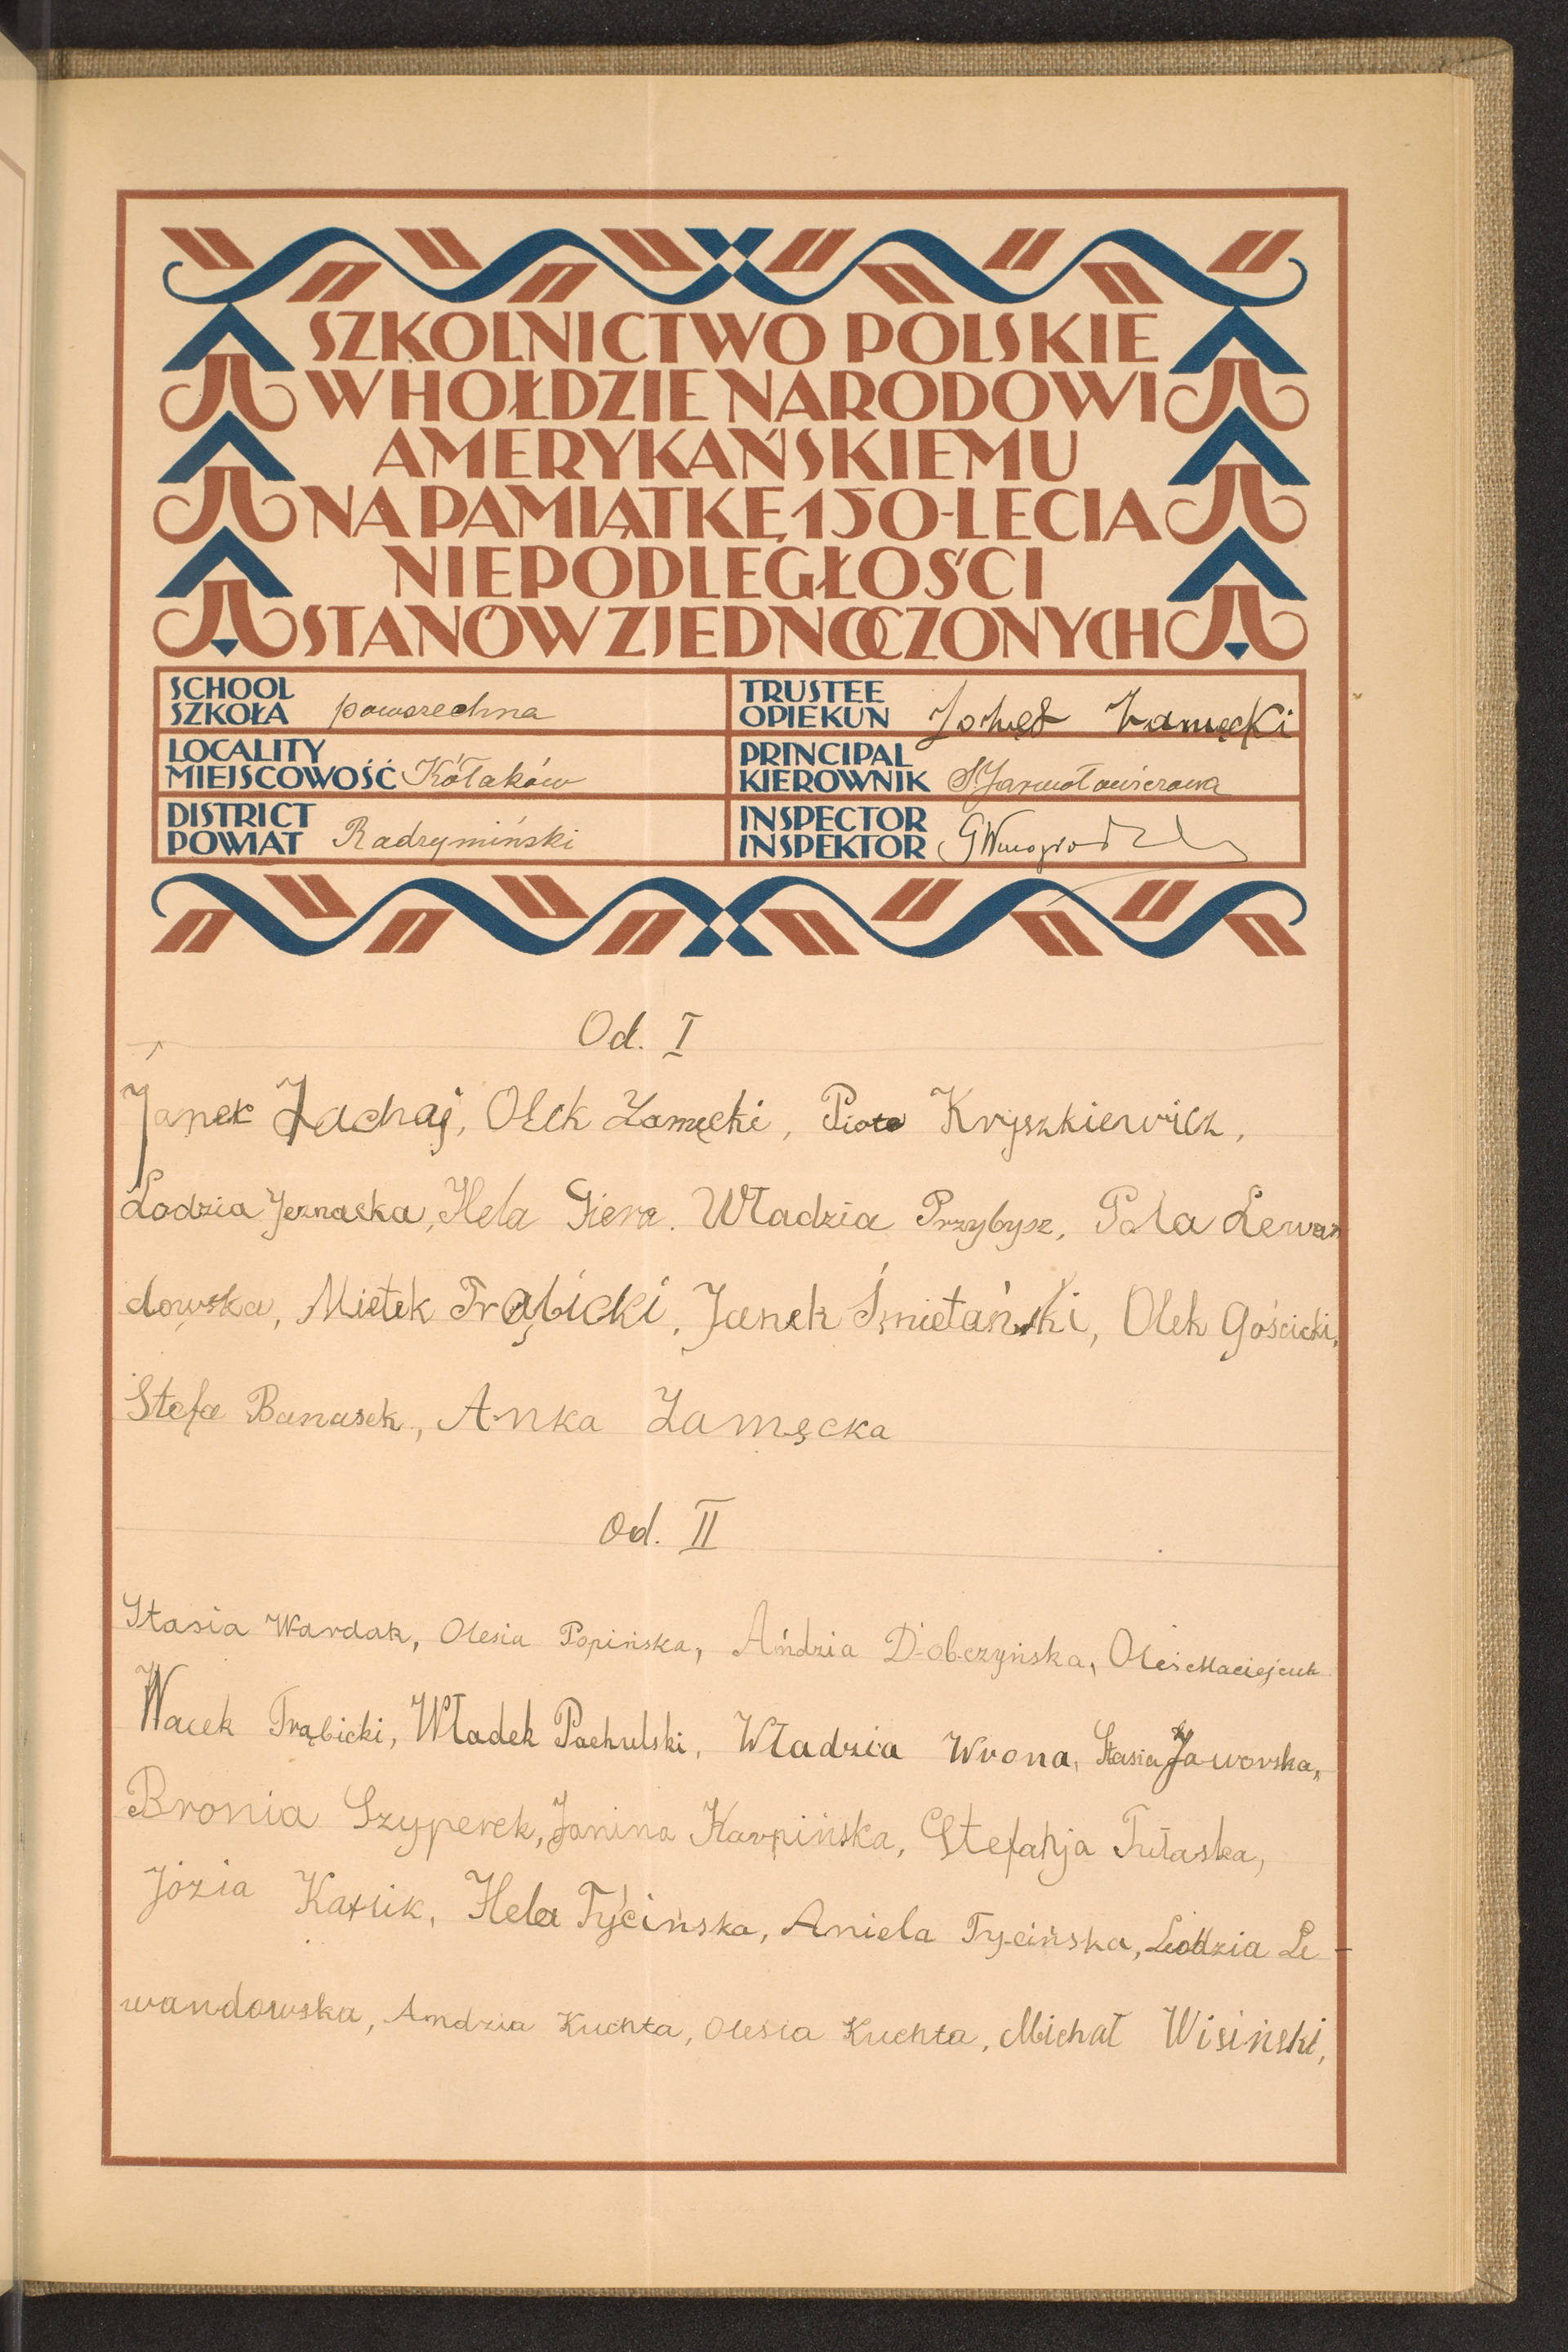 SZKOLNICTWO POLSKIE
W HOŁDZIE NARODOWI
AMERYKAŃSKIEMU
NA PAMIĄTKĘ 150-LECIA
NIEPODLEGŁOŚCI
STANÓW ZJEDNOCZONYCH
SCHOOL
SZKOŁA powszechna
TRUSTEE
OPIEKUN Zamęcki
LOCALITY
MIEJSCOWOŚĆ Kółaków
PRINCIPAL
KIEROWNIK S. Jarmołowiczowa
DISTRICT
POWIAT Radzymiński
INSPECTOR
INSPEKTOR
Od. I
Janek Zachaj, Olek Zamęcki, Piotr Kryszkiewicz,
Lodzia Jeznacka, Hela Giera. Władzia Przybysz, Pola Lewan
dowska, Mietek Trąbicki, Janek Śmietański, Olek Gościcki,
Stefa Banasek, Anka Zamęcka
Od. II
Stasia Wardak, Olesia Popińska, Ańdzia Dobczyńska, Oleś Maciejczuk
Wacek Trąbicki, Władek Pachulski, Władzia Wrona, Stasia Jaworska,
Bronia Szyperek, Janina Karpińska, Stefańja Tułaska,
Józia Kaflik, Hela Tycińska, Aniela Tycińska, Leodzia Le-
wandowska, Andzia Kuchta, Olesia Kuchta, Michał Wisiński,